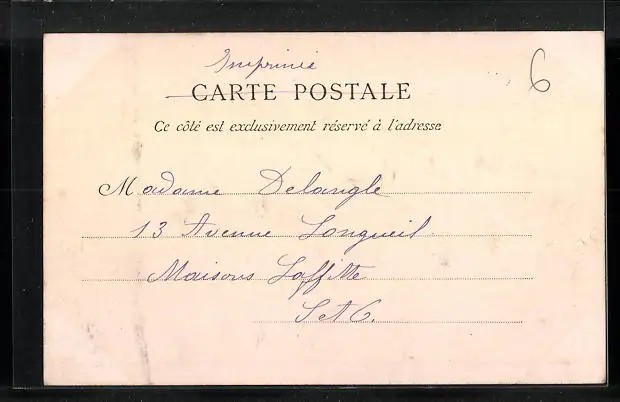 Imprimé
6
CARTE POSTALE
Ce côté est exclusivement réservé à l'adresse
Madame Delangle
13 Avenue Longueil
Maisons Laffitte
S et O.